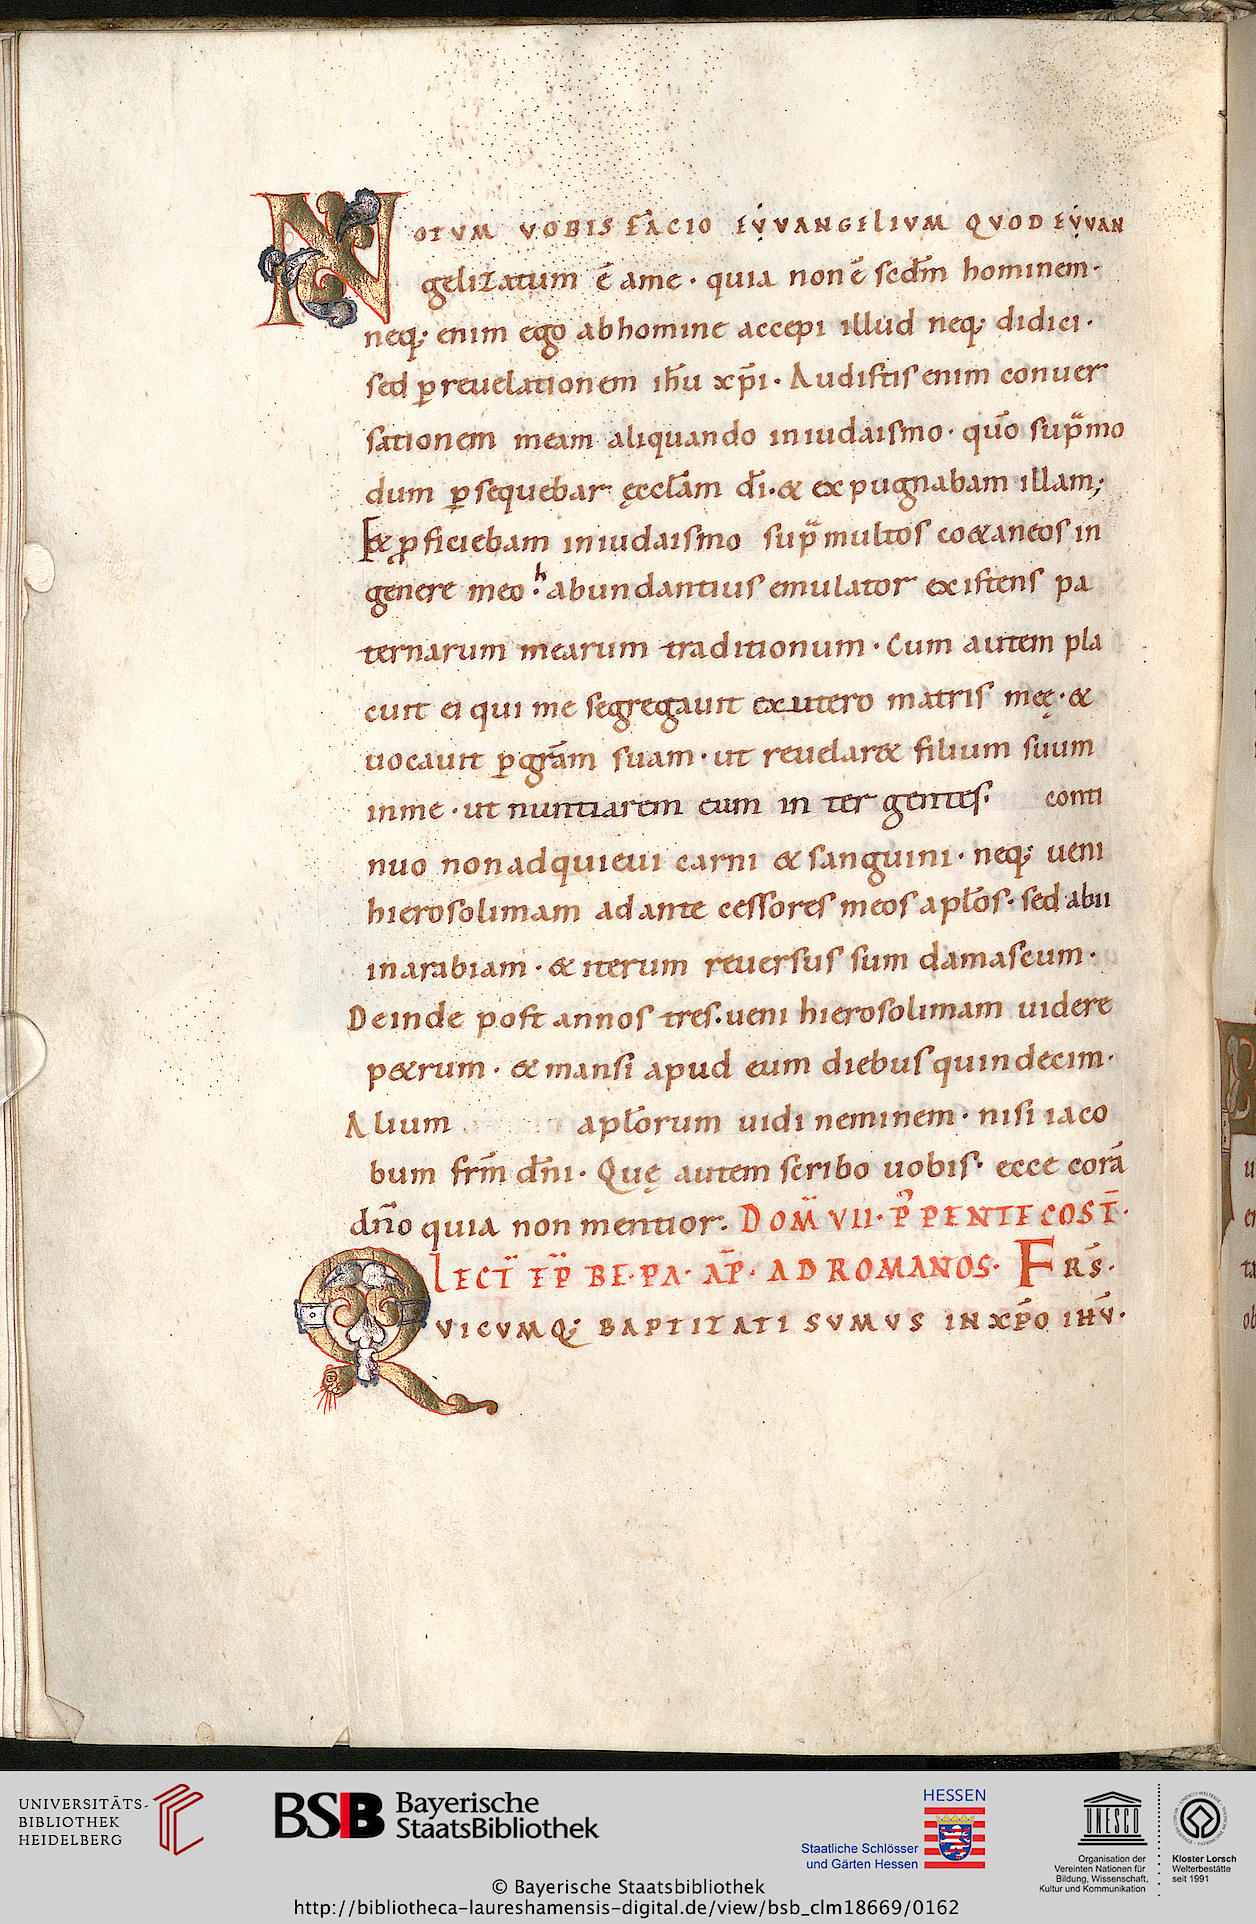 NOTUM VOBIS FACIO EVVANGELIUM QUOD EVVAN
gelizatum ē ame · quia non ē secd̄m hominem ·
neq; enim ego abhomine accepi illud neq; didici ·
sed ꝑreuelationem ih̄u xp̄i · Audistis enim conuer
sationem meam aliquando iniudaismo · quō sup̄mo
dum ꝑsequebar ęccl̄am d̄i · & expugnabam illam;
Et ꝓficiebam iniudaismo sup̄multos co&aneos in
genere meo · habundantius emulator existens pa
ternarum mearum traditionum · Cum autem pla
cuit ei qui me segregauit exutero matris meę · &
uocauit ꝑgr̄am suam · ut reuelar& filium suum
inme · ut nuntiarem eum in ter gentes · conti
nuo nonadquieui carni & sanguini · neq; ueni
hierosolimam adante cessores meos apl̄os · sed abii
inarabiam · & iterum reuersus sum damascum ·
Deinde post annos tres · ueni hierosolimam uidere
p&rum · & mansi apud eum diebus quindecim ·
Alium apl̄orum uidi neminem · nisi iaco
bum fr̄m dn̄i · Quę autem scribo uobis · ecce corā
dn̄o quia non mentior. DOM̄ VII · P̄ PENTECOST̄ ·
LECT̄ EP̄ BE · PA · AP̄ · AD ROMANOS · FRS̄ ·
QUICUMQ; BAPTITATI SUMUS IN XP̄O IHŪ ·
UNIVERSITÄTS-
BIBLIOTHEK
HEIDELBERG
BSB Bayerische
StaatsBibliothek
HESSEN
Staatliche Schlösser
und Gärten Hessen
UNESCO
Organisation der
Vereinten Nationen für
Bildung, Wissenschaft,
Kultur und Kommunikation
Kloster Lorsch
Welterbestätte
seit 1991
© Bayerische Staatsbibliothek
http://bibliotheca-laureshamensis-digital.de/view/bsb_clm18669/0162